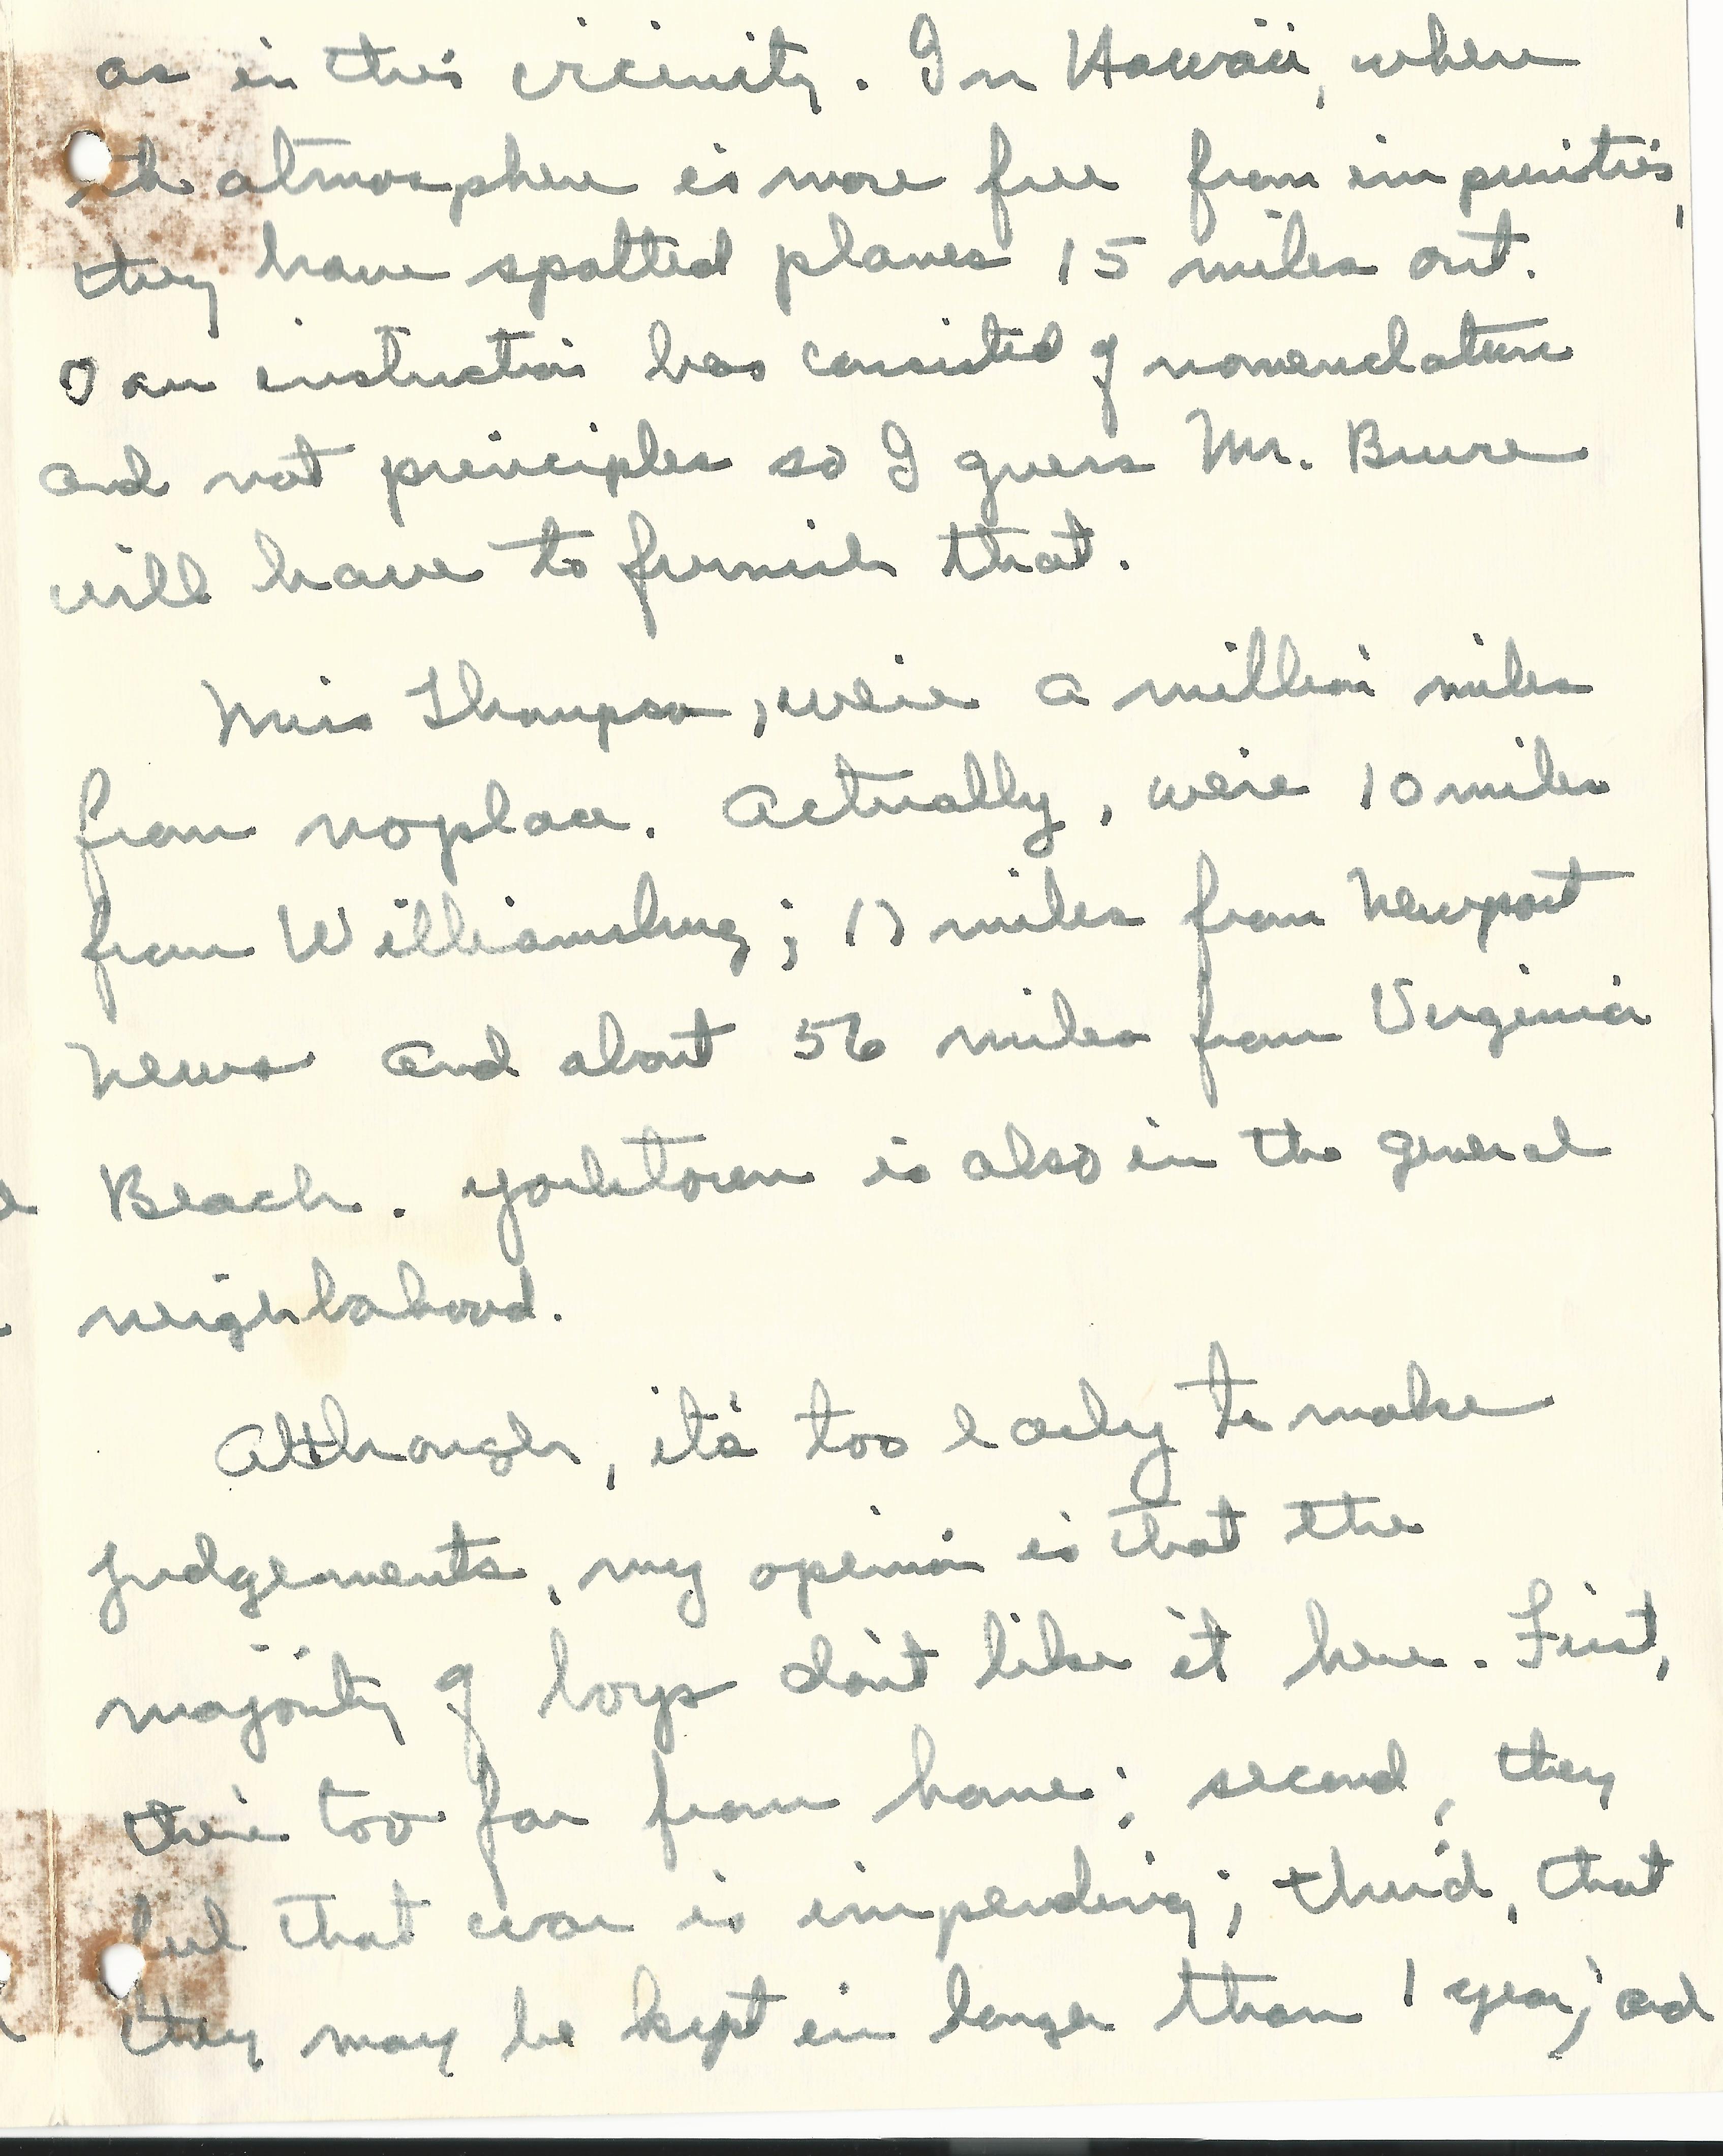 as in this vicinity. In Hawaii, where
the atmosphere is more free from impurities,
they have spotted planes 15 miles out.
Our instruction has consisted of nomenclature
and not principles so I guess Mr.
will have to furnish that.
Miss Thompson, we're a million miles
from noplace. Actually, we're 10 miles
from Williamsburg; 17 miles from Newport
News and about 56 miles from Virginia
Beach. Yorktown is also in the general
neighborhood.
Although, it's too early to make
judgements, my opinion is that the
majority of boys don't like it here. First,
they're too far from home; second, they
feel that war is impending; third, that
they may be kept in longer than 1 year; and